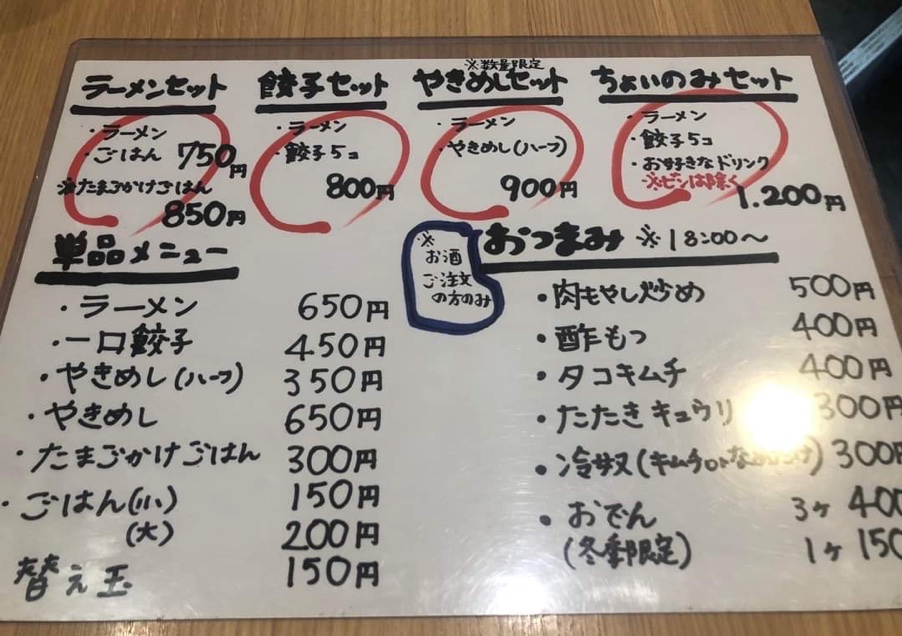 ラーメンセット
・ラーメン
・ごはん 750円
※たまごかけごはん
850円
餃子セット
・ラーメン
・餃子5コ
800円
※数量限定
やきめしセット
・ラーメン
・やきめし(ハーフ)
900円
ちょいのみセット
・ラーメン
・餃子5コ
・お好きなドリンク
※ビンは除く
1.200円
単品メニュー
・ラーメン 650円
・一口餃子 450円
・やきめし(ハーフ) 350円
・やきめし 650円
・たまごかけごはん 300円
・ごはん(小) 150円
(大) 200円
替え玉 150円
※
お酒
ご注文
の方のみ
おつまみ ※18:00〜
・肉もやし炒め 500円
・酢もつ 400円
・タコキムチ 400円
・たたきキュウリ 300円
・冷奴(キムチor) 300円
・おでん 3ヶ 400
(冬季限定) 1ヶ 150